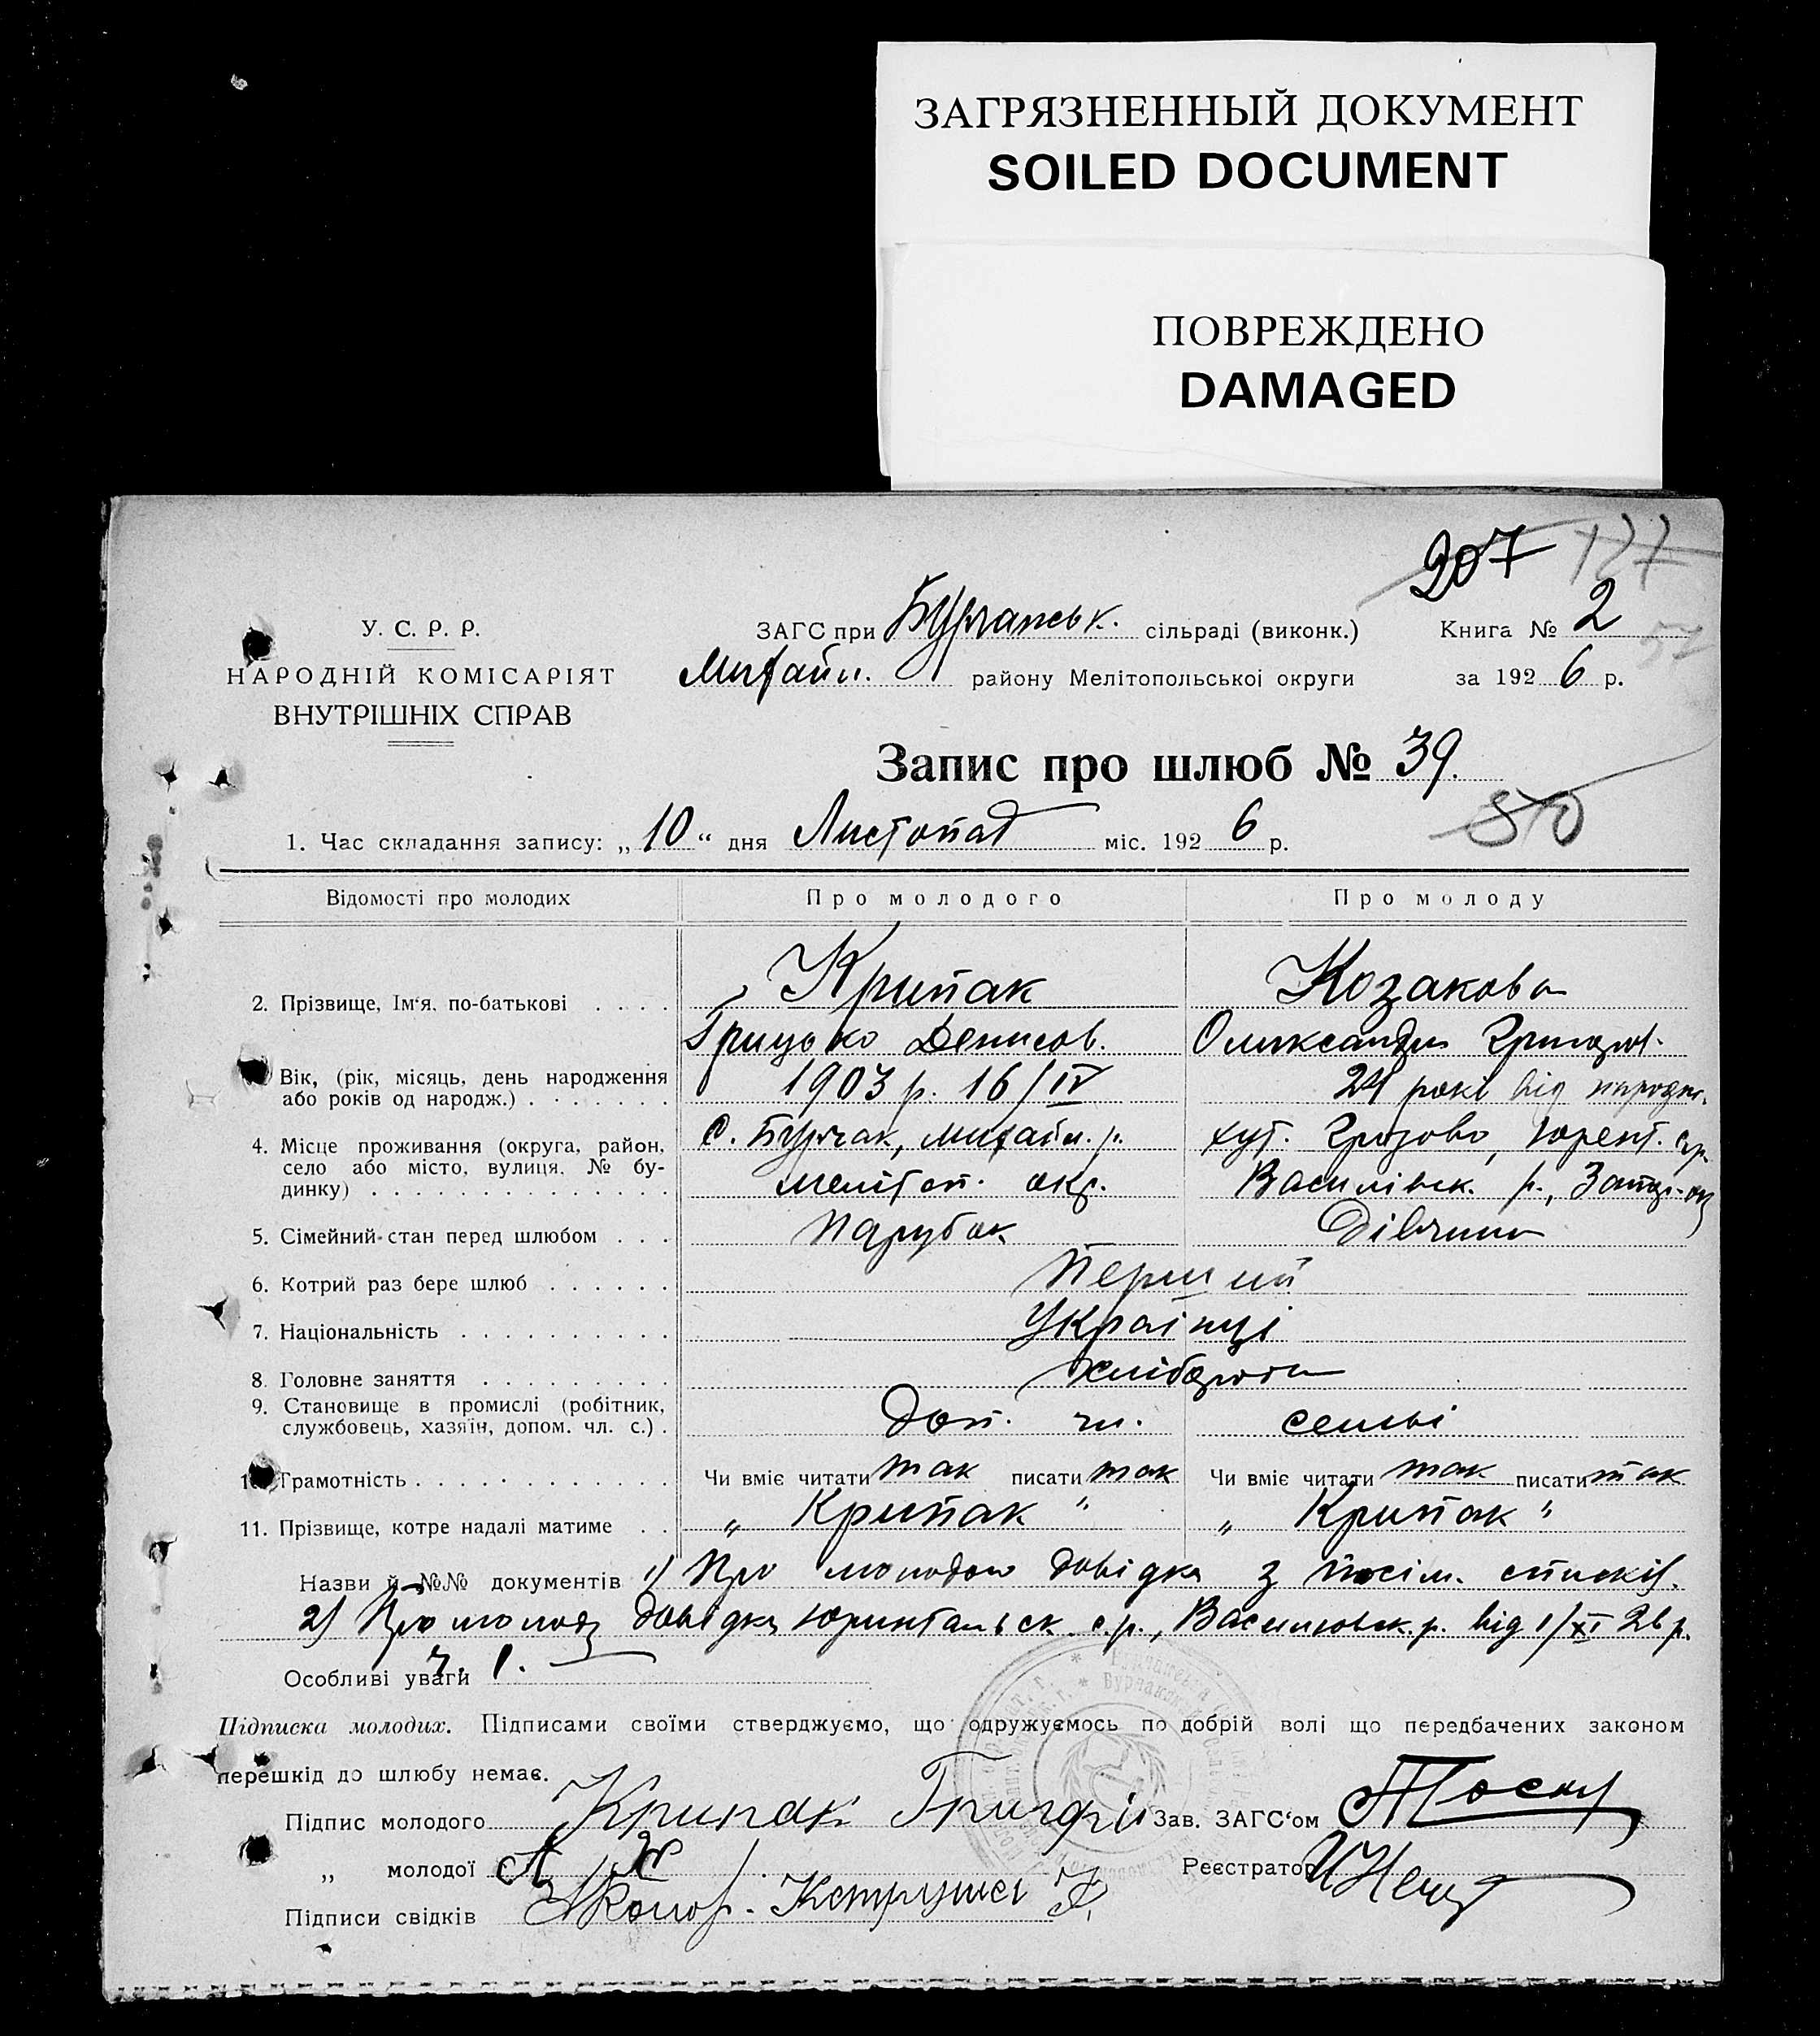 ЗАГРЯЗНЕННЫЙ ДОКУМЕНТ
SOILED DOCUMENT
ПОВРЕЖДЕНО
DAMAGED
207 127
У. С. Р. Р.
НАРОДНІЙ КОМІСАРІЯТ
ВНУТРІШНІХ СПРАВ
ЗАГС при Бурчацьк. сільраді (виконк.) Книга № 2
Михайл. району Мелітопольської округи за 1926 р.
57
Запис про шлюб № 39.
1. Час складання запису: „10“ дня Листопад міс. 1926 р.
Відомості про молодих Про молодого Про молоду
2. Прізвище, Ім‘я, по-батькові . . . . Крипак Козакова
Грицько Денисов. Олександра Григоров.
Вік, (рік, місяць, день народження або років од народж.) . . . . . . . 1903 р. 16/IV 24 років від народж.
4. Місце проживання (округа, район, село або місто, вулиця, № будинку) . . . . . . . . . . . . . .
с. Бурчак, Михайл. р. хут. Грозово, Юрент. ср.
Мелітоп. окр. Василівск. р., Запор. ок
5. Сімейний стан перед шлюбом . . . Парубок Дівчина
6. Котрий раз бере шлюб . . . . . . Перший
7. Національність . . . . . . . . . . Українці
8. Головне заняття . . . . . . . . . Хлібороби
9. Становище в промислі (робітник, службовець, хазяїн, допом. чл. с.) . Доп. чл. семьі
Грамотність . . . . . . . . . . . Чи вміє читати так писати так Чи вміє читати так писати так
11. Прізвище, котре надалі матиме . . „ Крипак “ „ Крипак “
Назви й №№ документів 1) Про молодого довідка з посім. списків.
2) Про молоду довідка Юринтальск. с.р., Василювск. р. від 1/XI 26 р.
Особливі уваги
Підписка молодих. Підписами своїми стверджуємо, що одружуємось по добрій волі що передбачених законом
перешкід до шлюбу немає.
Підпис молодого Крипак Григорій Зав. ЗАГС‘ом
„ молодої А К Реєстратор
Підписи свідків